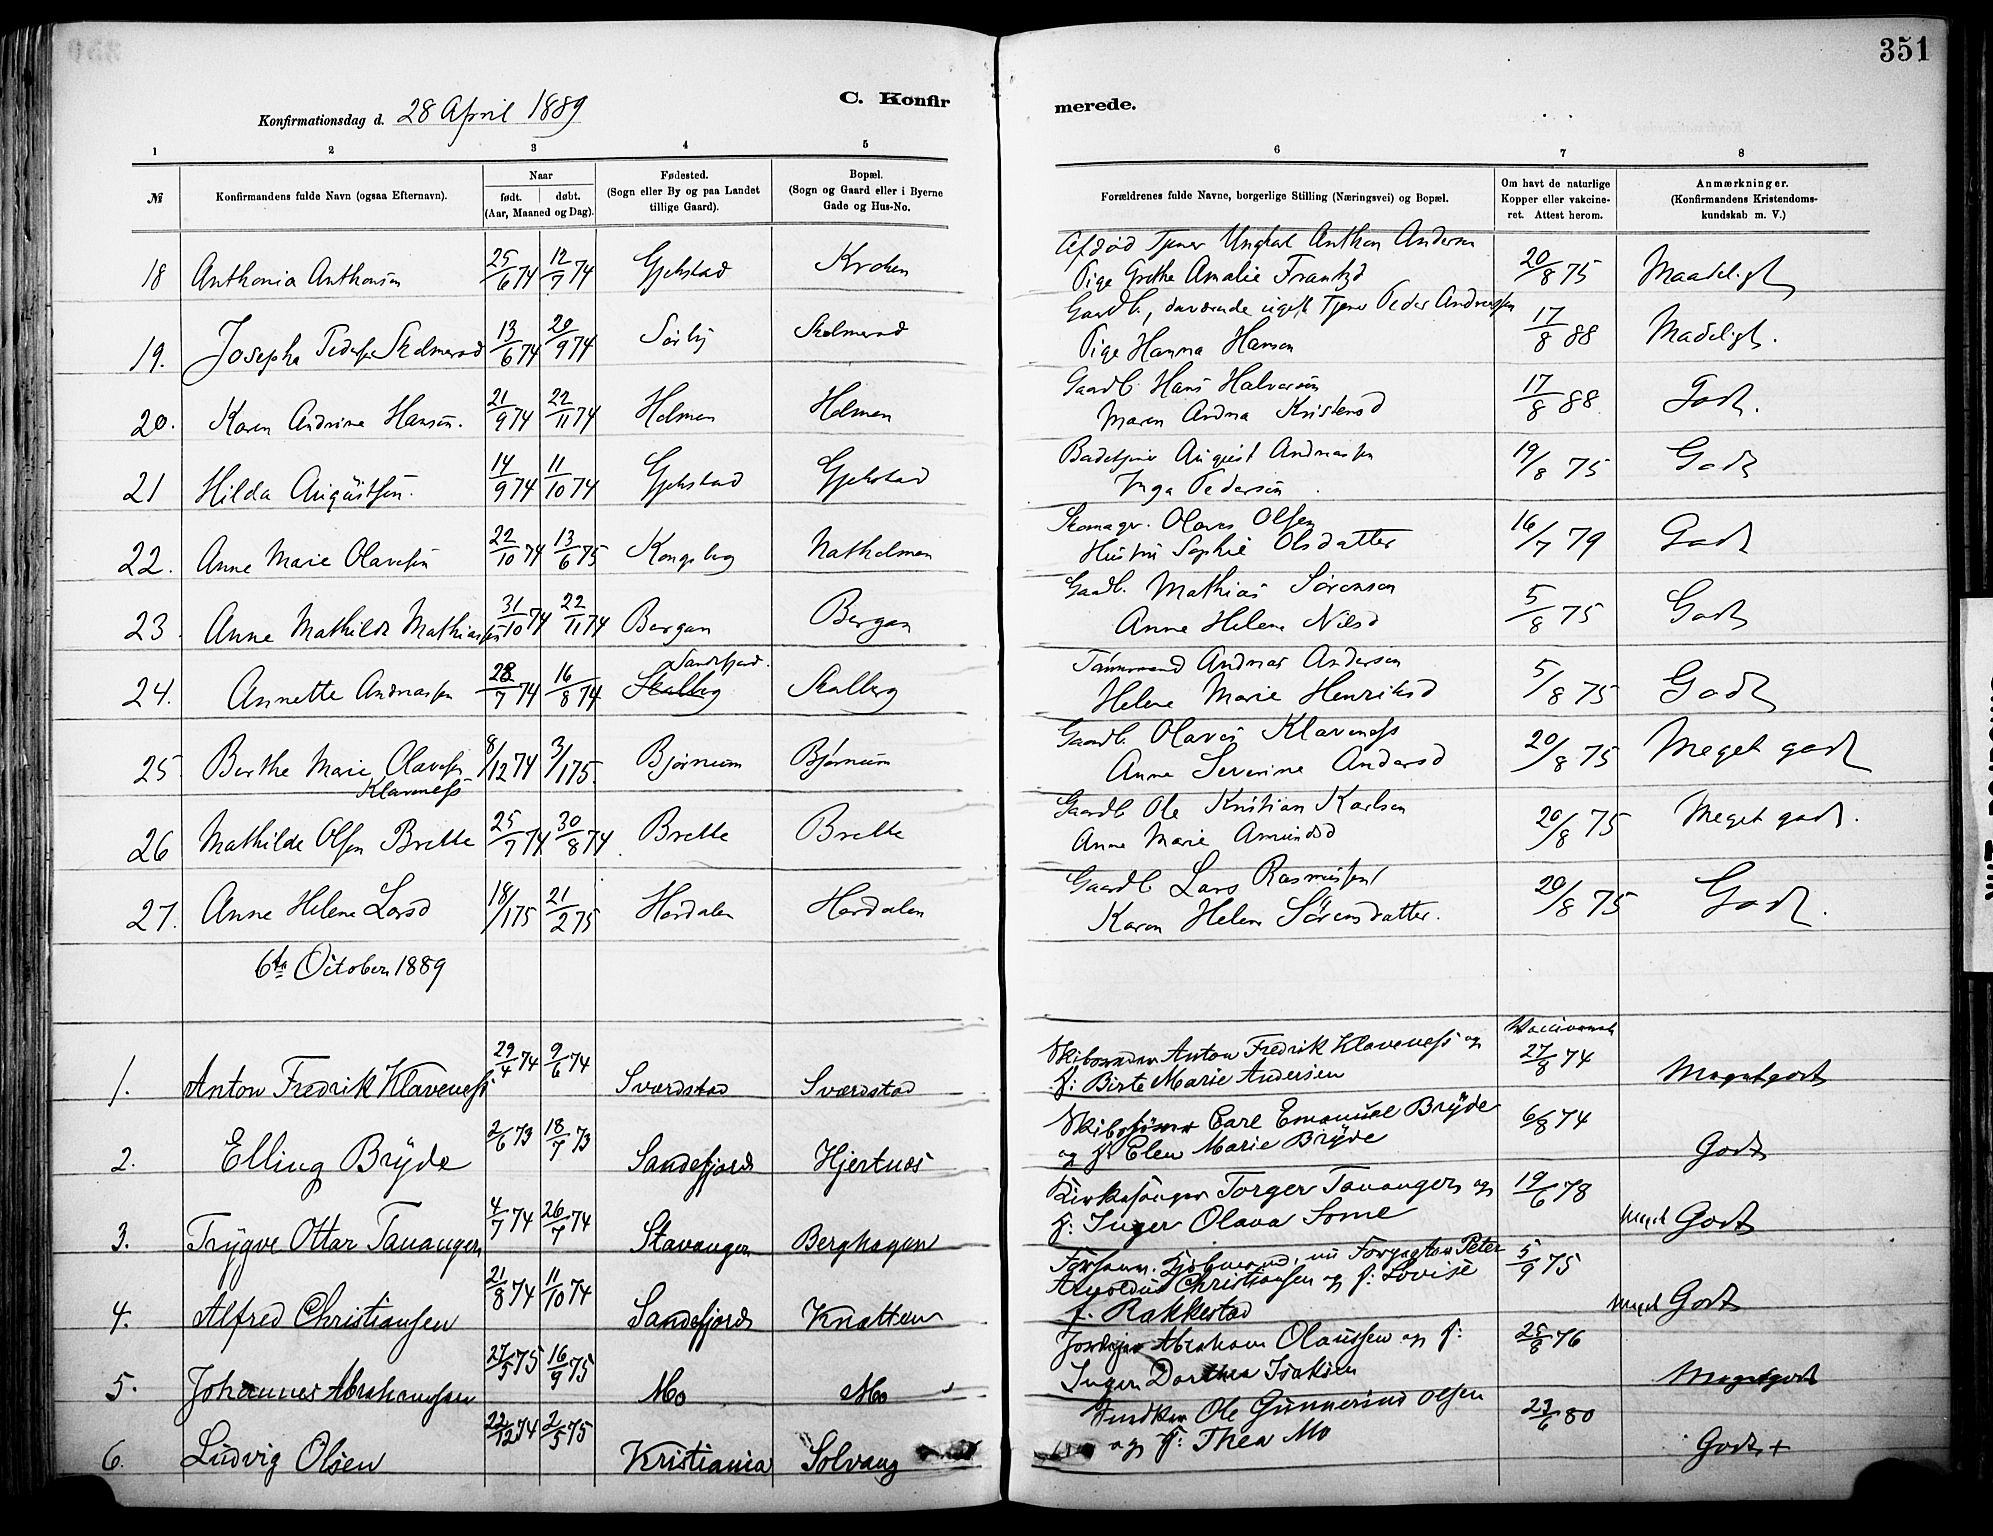 351
C. Konfirmerede.
Konfirmationsdag d. 28 April 1889
1 2 3 4 5 6 7 8
№ Konfirmandens fulde Navn (ogsaa Efternavn). Naar født. døbt. (Aar, Maaned og Dag). Fødested. (Sogn eller By og paa Landet tillige Gaard). Bopæl. (Sogn og Gaard eller i Byerne Gade og Hus-No. Forældrenes fulde Navne, borgerlige Stilling (Næringsvei) og Bopæl. Om havt de naturlige Kopper eller vakcineret. Attest herom. Anmærkninger. (Konfirmandens Kristendomskundskab m. V.)
18 Anthonia Anthonsen 25/6 74 12/7 74 Gjekstad Kroken Afdød Tjener Ungkarl Anthon Andersen
Pige Grethe Amalie Frantzd 20/8 75 Maadeligt
19. Josepha Peders Skolmerød 13/6 74 20/9 74 Sørby Skolmerød Gaardb., daværende Tjener Peder Andreassen
Pige Hanna Hansen 17/8 88 Madeligt.
20. Karen Andrine Hansen. 21/9 74 22/11 74 Holmen Holmen Gaardb. Hans Halvorsen
Maren Andrea Kristensd 17/8 88 Godt.
21 Hilda Augustsen. 14/9 74 11/10 74 Gjekstad Gjekstad Badetjener August Andreassen
Inga Pedersen 19/8 75 Godt
22. Anne Marie Olavesen 22/10 74 13/6 75 Kongsberg Natholmen Skomager. Olaves Olsen
Hustru Sophie Olsdatter 16/7 79 Godt
23 Anne Mathilde Mathiassen 31/10 74 22/11 74 Bergan Bergan Gaardb. Mathias Sörensen
Anne Helene Nilsd 5/8 75 Godt
24. Annette Andreassen 28/7 74 16/8 74 Sandefjord. Skalberg Skalberg Tømmermand Andreas Andersen
Helene Marie Henriksd 5/8 75 Godt
25 Berthe Marie Olavesen Klaveness 8/12 74 3/1 75. Bjørnum Bjørnum Gaardb. Olaves Klaveness
Anne Severine Andersd 20/8 75 Meget godt
26 Mathilde Olsen Brekke 25/7 74 30/8 74 Brekke Brekke Gaardb Ole Kristian Karlsen
Anne Marie Amundsd 20/8 75 Meget godt.
27. Anne Helene Larsd 18/1 75 21/2 75 Hordalen Hordalen Gaardb Lars Rasmussen
Karen Helene Sörensdatter. 20/8 75 Godt.
6te October 1889
Vaccineret
1. Anton Fredrik Klaveness 29/4 74 9/6 74 Sværdstad Sværdstad Skibsreder Anton Fredrik Klaveness og
H: Birte Marie Andersen 27/8 74 Megetgodt
2. Elling Brÿde 2/6 73 18/7 73 Sandefjord Hjertnæs Skibsfører Carl Emanuel Brÿde
og H: Elen Marie Brÿde 6/8 74 Godt
3. Trÿgve Ottar Tananger 4/7 74 26/7 74 Stavanger Berghagen Kirkesanger Torger Tananger og
H: Inger Olava Some 19/6 78 Meget Godt
4. Alfred Christiansen 21/8 74 11/10 74 Sandefjord Knatten nu Peter
Arnoldus Christiansen og H: Lovise
f. Rakkestad 5/9 75 Meget Godt
5. Johannes Abrahamsen 27/5 75 16/9 75 Mo Mo Abraham Olaussen og H:
Inger Dorthea Isaksen 25/8 76 Megetgodt
6. Ludvig Olsen 22/12 74 2/5 75 Kristiania Solvang Snedker Ole Gunnerius Olsen
og H: Thea Mo 23/6 80 Godt +